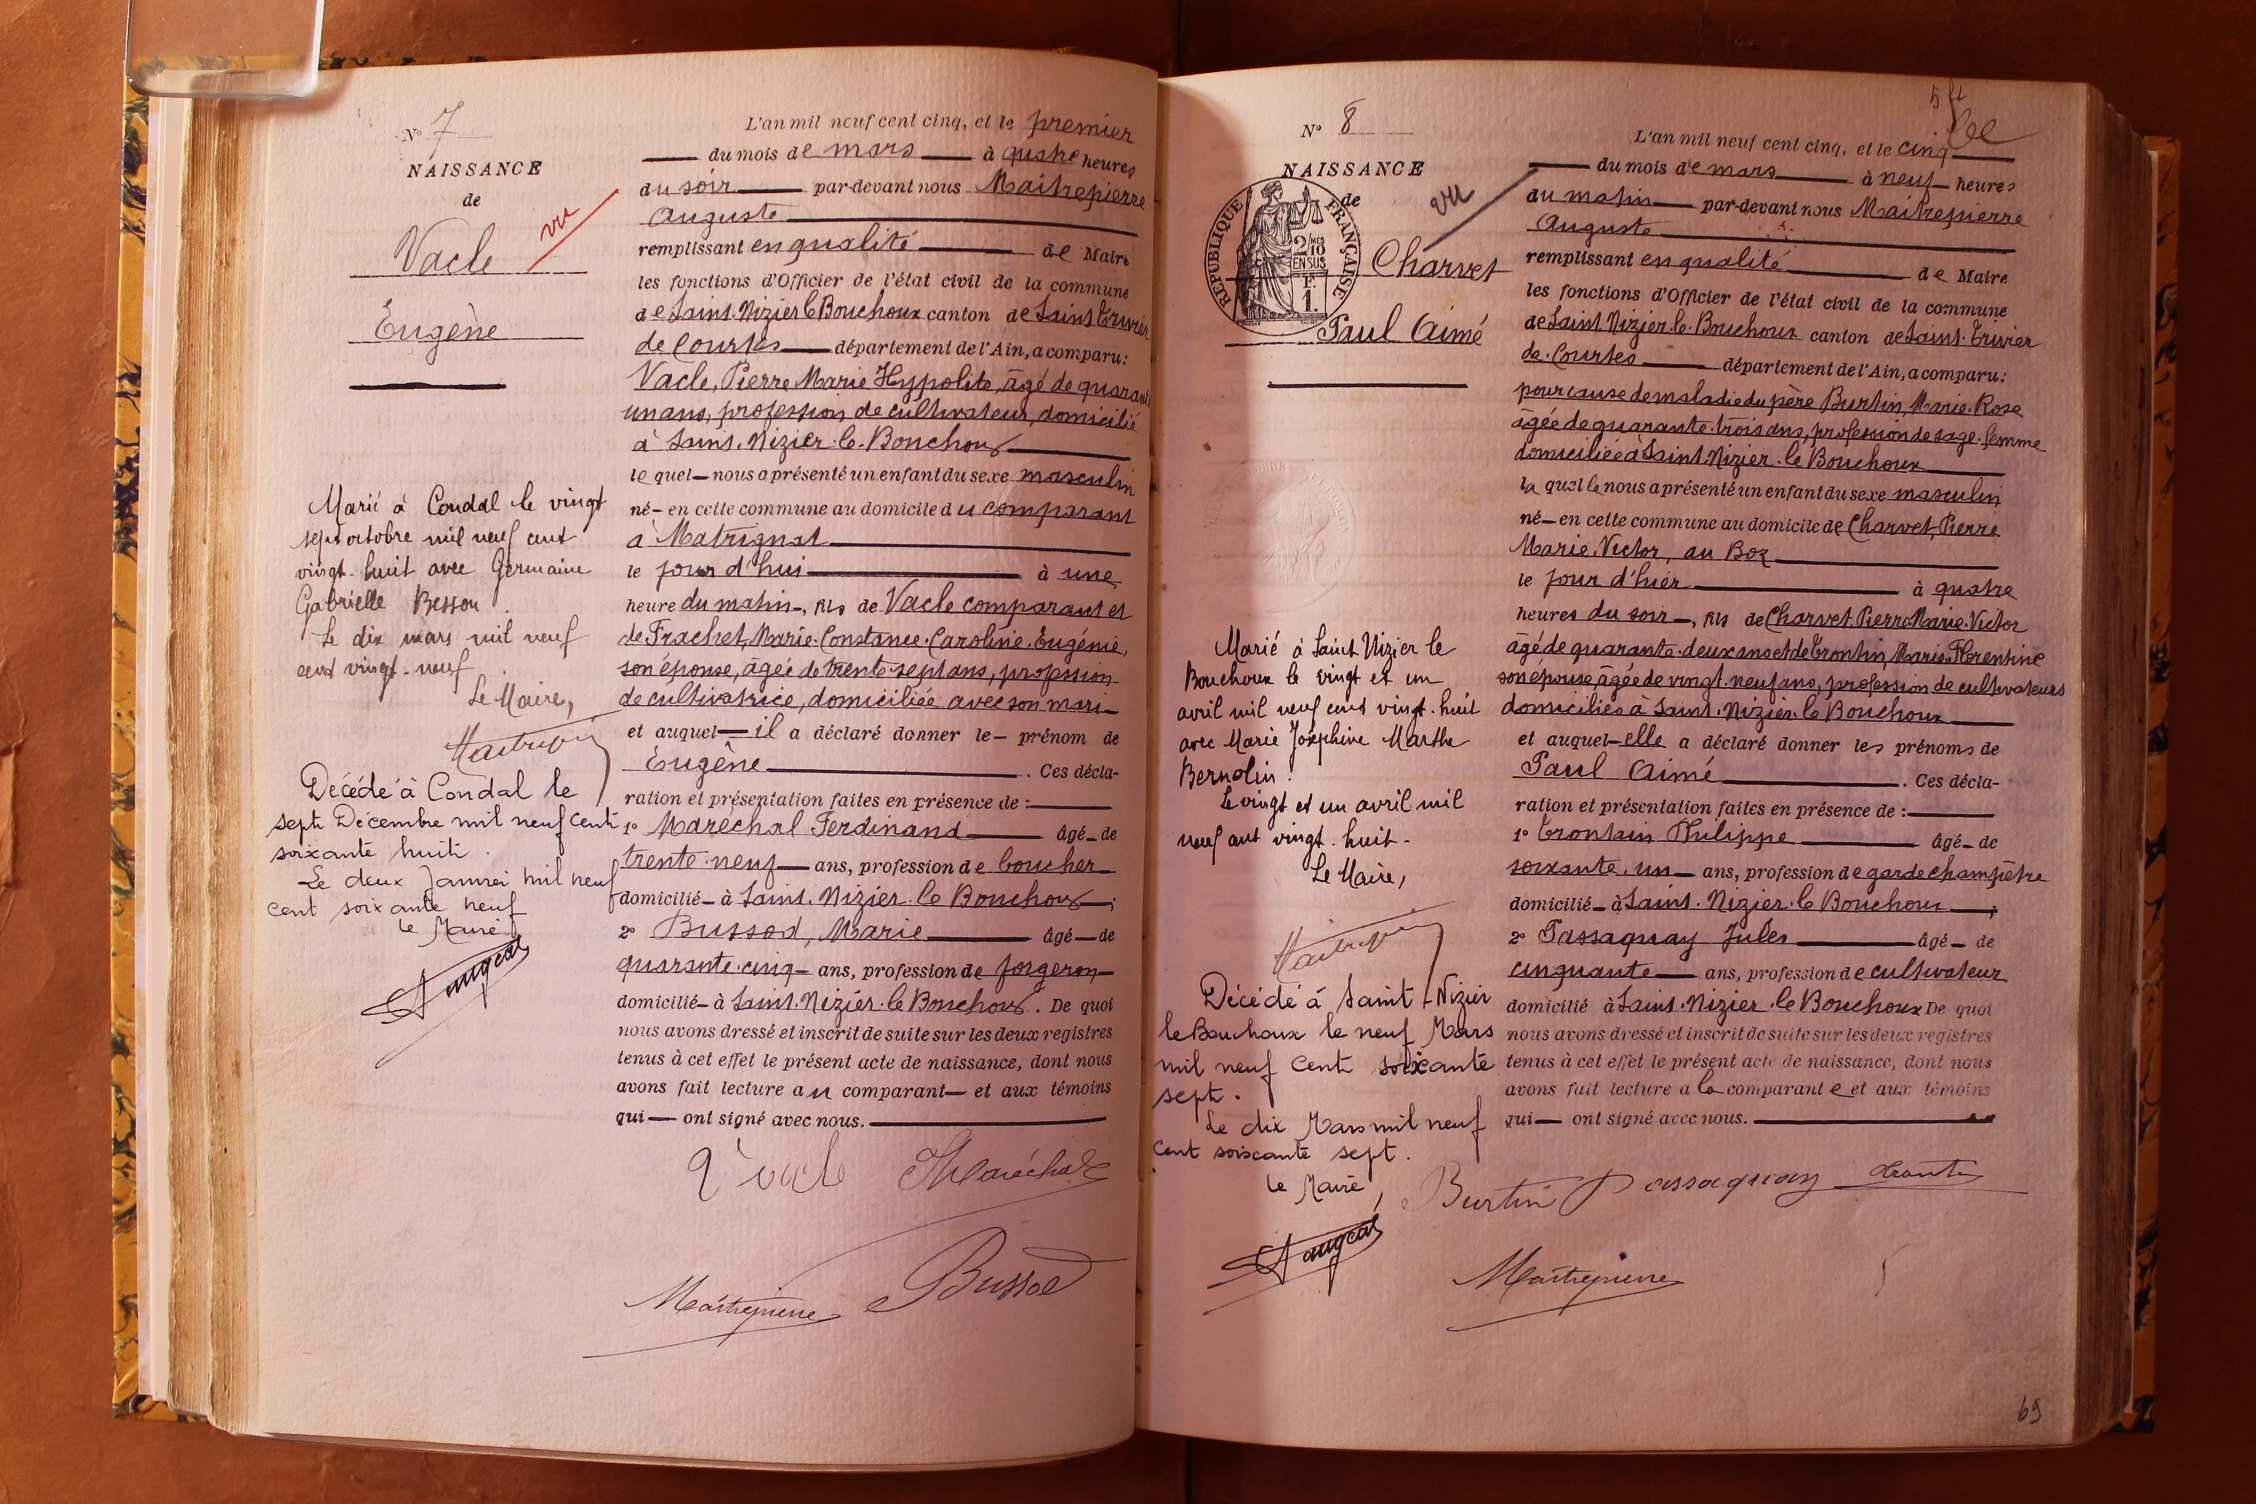 N° 7
NAISSANCE
de
vu
Vacle
Eugène
Marié à Condal le vingt
sept octobre mil neuf cent
vingt-huit avec Germaine
Gabrielle Besson.
Le dix mars mil neuf
cent vingt-neuf.
Le Maire,
Décédé à Condal le
sept Décembre mil neuf cent
soixante huit.
Le deux Janvier mil neuf
cent soixante neuf
le Maire
L'an mil neuf cent cinq, et le premier
du mois de mars à quatre heures
du soir par-devant nous Maitrepierre
Auguste
remplissant en qualité de Maire
les fonctions d'Officier de l'état civil de la commune
de Saint-Nizier-le-Bouchoux canton de Saint-Trivier
de Courtes département de l'Ain, a comparu:
Vacle, Pierre Marie Hypolite, âgé de quarante
un ans, profession de cultivateur, domicilié
à Saint-Nizier-le-Bouchoux
le quel nous a présenté un enfant du sexe masculin
né en cette commune au domicile du comparant
à Matrignat
le jour d'hui à une
heure du matin, fils de Vacle comparant et
de Frachet, Marie-Constance-Caroline-Eugénie,
son épouse, âgée de trente-sept ans, profession
de cultivatrice, domiciliée avec son mari
et auquel il a déclaré donner le prénom de
Eugène. Ces décla-
ration et présentation faites en présence de :
1° Maréchal Ferdinand âgé de
trente-neuf ans, profession de boucher
domicilié à Saint-Nizier-le-Bouchoux;
2° Bussod, Marie âgé de
quarante-cinq ans, profession de forgeron
domicilié à Saint-Nizier-le-Bouchoux. De quoi
nous avons dressé et inscrit de suite sur les deux registres
tenus à cet effet le présent acte de naissance, dont nous
avons fait lecture au comparant et aux témoins
qui ont signé avec nous.
Vacle Maréchal
Maitrepierre Bussod
N° 8
NAISSANCE
de
vu
REPUBLIQUE FRANÇAISE
2/10 MES
EN SUS
F.
1.
Charvet
Paul Aimé
Marié à Saint Nizier le
Bouchoux le vingt et un
avril mil neuf cent vingt-huit
avec Marie Joséphine Marthe
Bernolin.
Le vingt et un avril mil
neuf cent vingt-huit.
Le Maire,
Décédé à Saint-Nizier
le Bouchoux le neuf Mars
mil neuf cent soixante
sept.
Le dix Mars mil neuf
cent soixante sept.
le Maire,
L'an mil neuf cent cinq, et le cinq
du mois de mars à neuf heures
du matin par-devant nous Maitrepierre
Auguste
remplissant en qualité de Maire
les fonctions d'Officier de l'état civil de la commune
de Saint-Nizier-le-Bouchoux canton de Saint-Trivier
de-Courtes département de l'Ain, a comparu:
pour cause de maladie du père Burtin, Marie-Rose
âgée de quarante-trois ans, profession de sage-femme
domiciliée à Saint-Nizier-le-Bouchoux
la quelle nous a présenté un enfant du sexe masculin
né en cette commune au domicile de Charvet, Pierre
Marie-Victor, au Boz
le jour d'hier à quatre
heures du soir, fils de Charvet, Pierre Marie-Victor
âgé de quarante-deux ans et de Trontin, Marie-Florentine
son épouse, âgée de vingt-neuf ans, profession de cultivateurs
domiciliés à Saint-Nizier-le-Bouchoux
et auquel elle a déclaré donner les prénoms de
Paul Aimé. Ces décla-
ration et présentation faites en présence de :
1° Trontain Philippe âgé de
soixante-un ans, profession de garde champêtre
domicilié à Saint-Nizier-le-Bouchoux;
2° Passaquay Jules âgé de
cinquante ans, profession de cultivateur
domicilié à Saint-Nizier-le-Bouchoux De quoi
nous avons dressé et inscrit de suite sur les deux registres
tenus à cet effet le présent acte de naissance, dont nous
avons fait lecture a la comparante et aux témoins
qui ont signé avec nous.
Burtin Passaquay Trontin
Maitrepierre
69